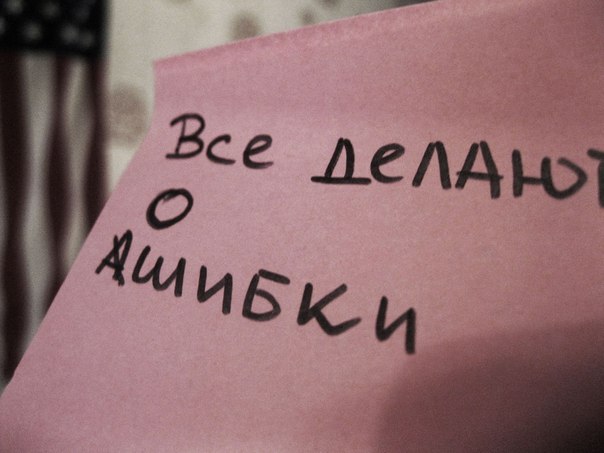 Все делают
О
Ашибки